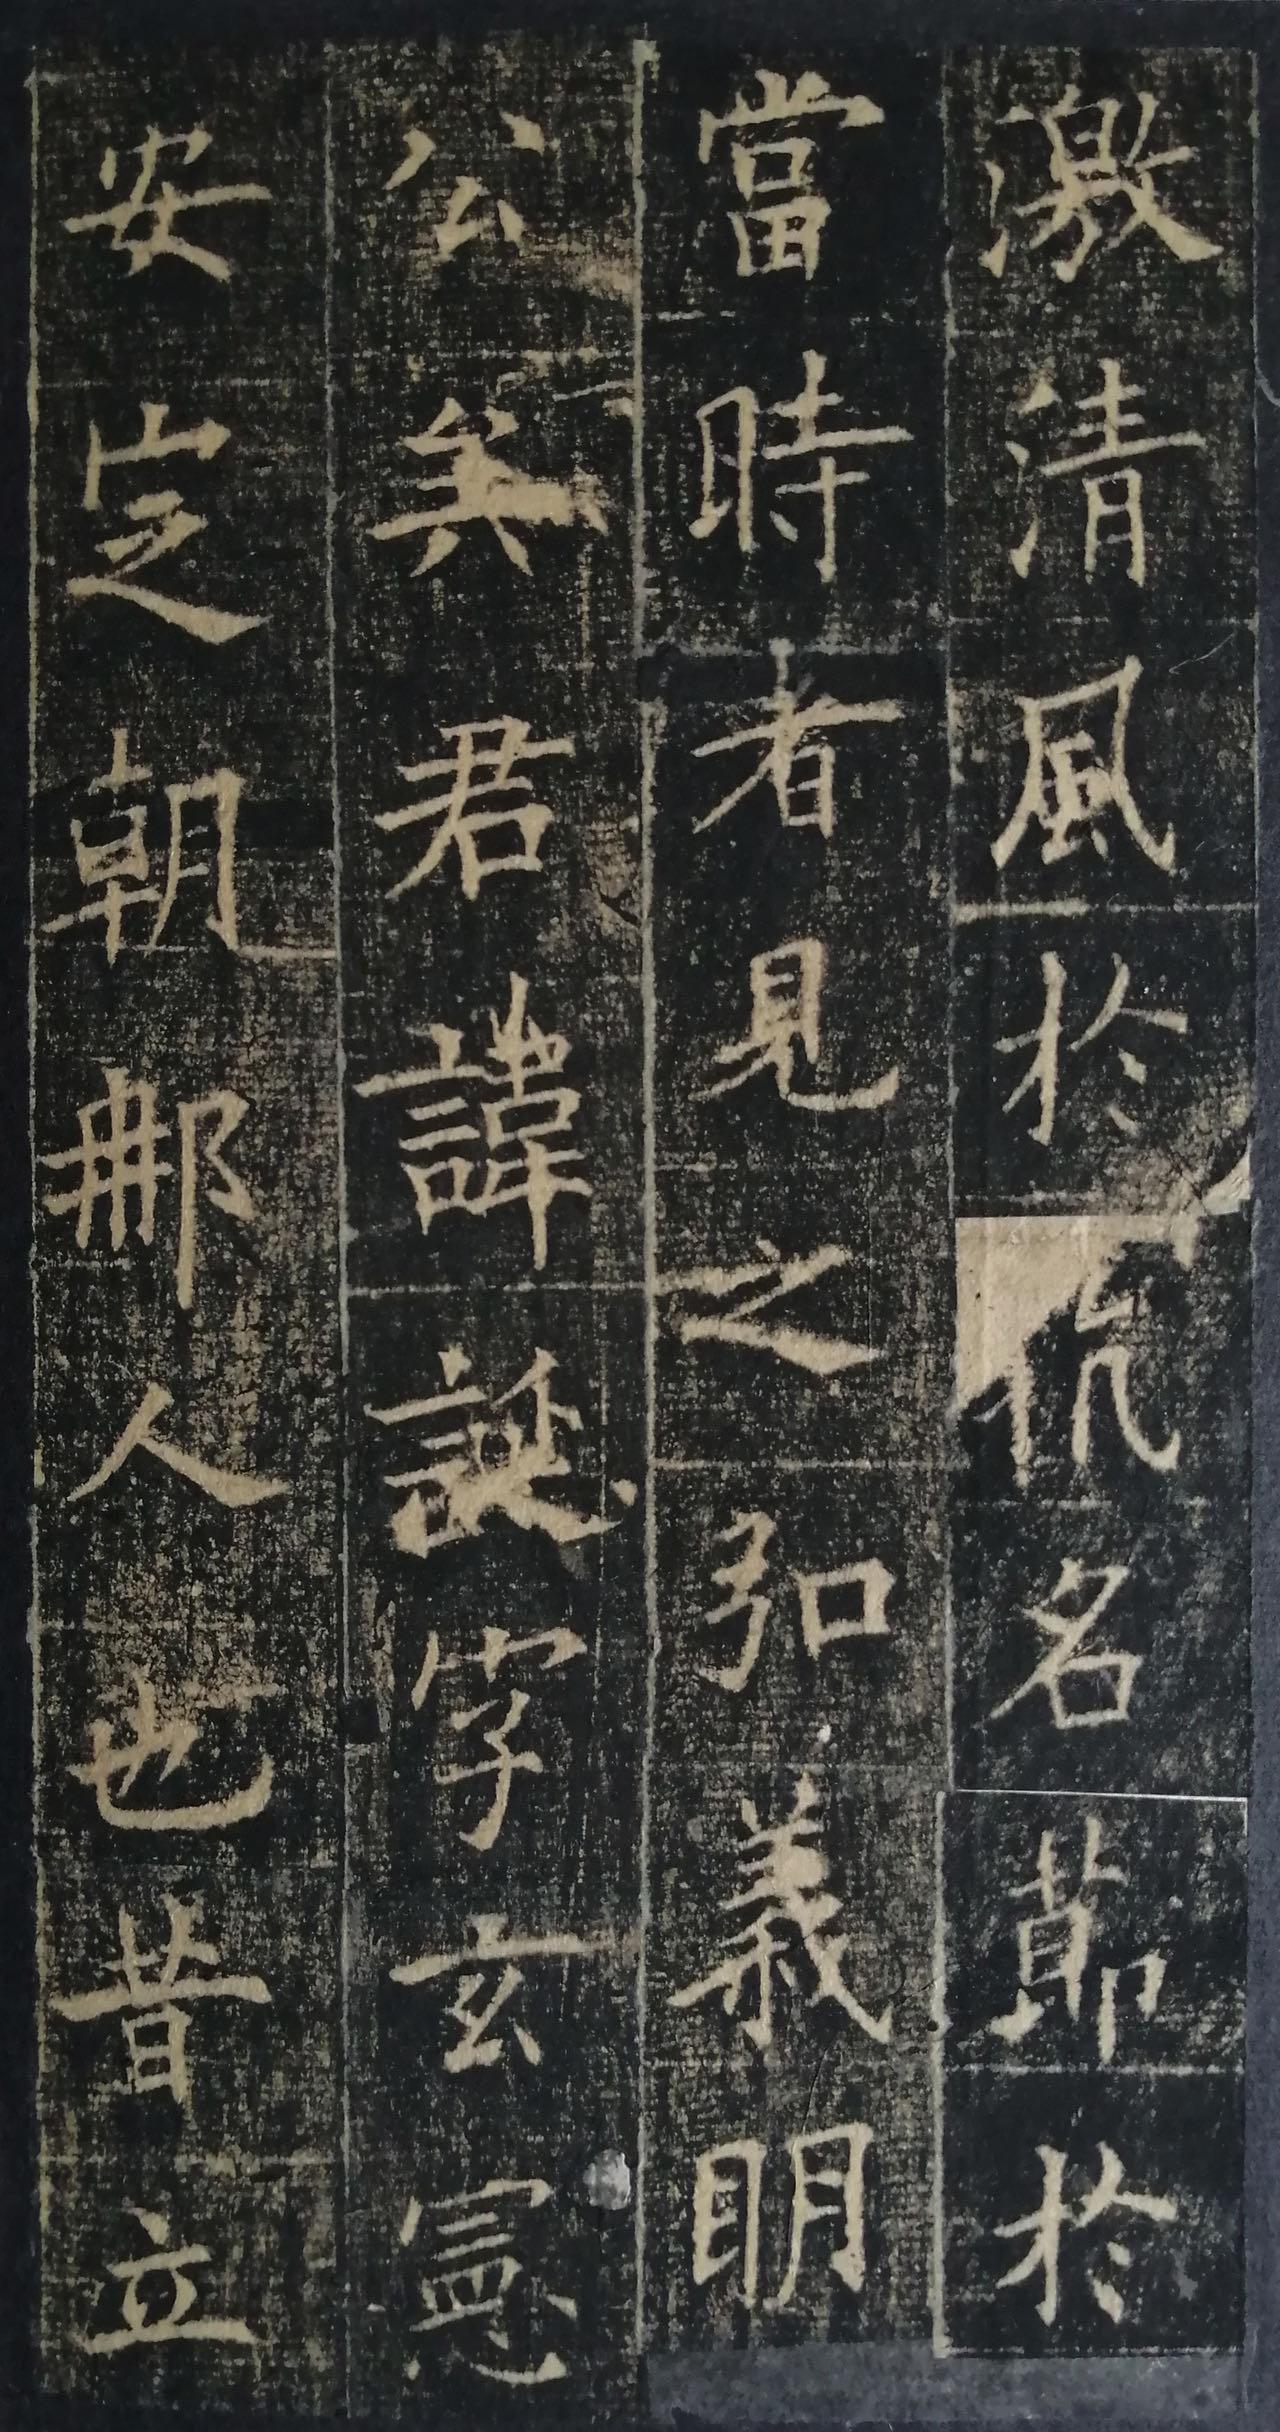 激清風於伉名節於
當時者見之弘義明
公矣君諱誕字玄憲
安定朝那人也昔立